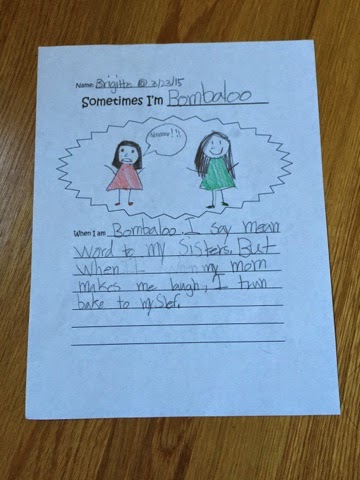 Name: Brigitte @ 3/23/15
Sometimes I'm Bombaloo
Noooo!!!
When I am Bombaloo. I say mean
word to my Sisters. But
when my mom
makes me laugh, I turn
bake to my Slef.